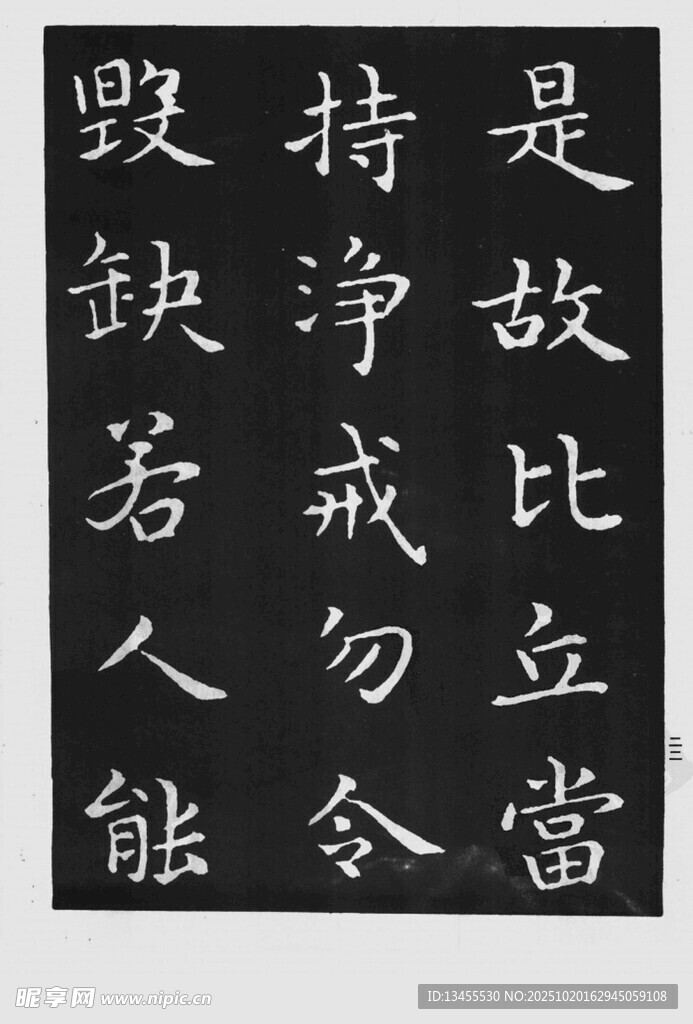 是故比丘當
持浄戒勿令
毀缺若人能
二三
昵享网 www.nipic.cn
ID:13455530 NO:20251020162945059108